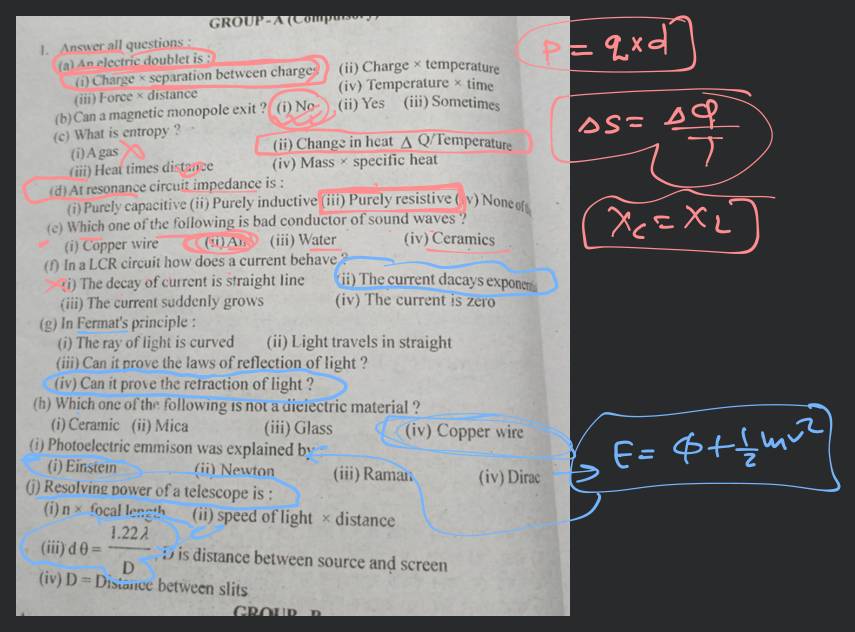 GROUP-A (Compulsory)
P = q×d
1. Answer all questions :
(a) An electric doublet is :
(i) Charge × separation between charges (ii) Charge × temperature
(iii) Force × distance (iv) Temperature × time
(b) Can a magnetic monopole exit ? (i) No (ii) Yes (iii) Sometimes
ΔS = ΔQ/T
(c) What is entropy ?
(i) A gas (ii) Change in heat Δ Q/Temperature
(iii) Heat times distance (iv) Mass × specific heat
(d) At resonance circuit impedance is :
(i) Purely capacitive (ii) Purely inductive (iii) Purely resistive (iv) None of
X_C = X_L
(e) Which one of the following is bad conductor of sound waves ?
(i) Copper wire (ii) Air (iii) Water (iv) Ceramics
(f) In a LCR circuit how does a current behave ?
(i) The decay of current is straight line (ii) The current dacays exponen
(iii) The current suddenly grows (iv) The current is zero
(g) In Fermat's principle :
(i) The ray of light is curved (ii) Light travels in straight
(iii) Can it prove the laws of reflection of light ?
(iv) Can it prove the retraction of light ?
(h) Which one of the following is not a dielectric material ?
(i) Ceramic (ii) Mica (iii) Glass (iv) Copper wire
(i) Photoelectric emmison was explained by
E = φ + 1/2 mv²
(i) Einstein (ii) Newton (iii) Raman (iv) Dirac
(j) Resolving power of a telescope is :
(i) n × focal length (ii) speed of light × distance
(iii) d θ = 1.22 λ / D, D is distance between source and screen
(iv) D = Distance between slits
GROUP